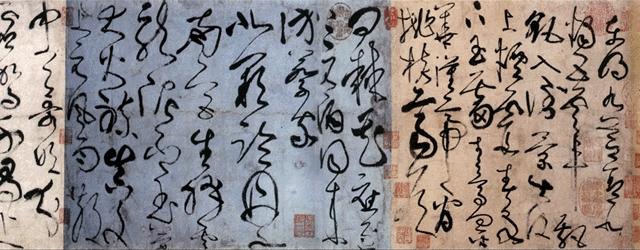 東明九芝蓋北
燭五雲車飄
飖入倒景出沒
上煙霞春泉
下玉霤青鳥向金
華漢帝看
桃核齊侯
問棘花應
逐上元酒同來
訪蔡家
北闕臨丹水
南宮生絳雲
龍泥印玉簡
大火煉真文
上元風雨散
中天歌吹